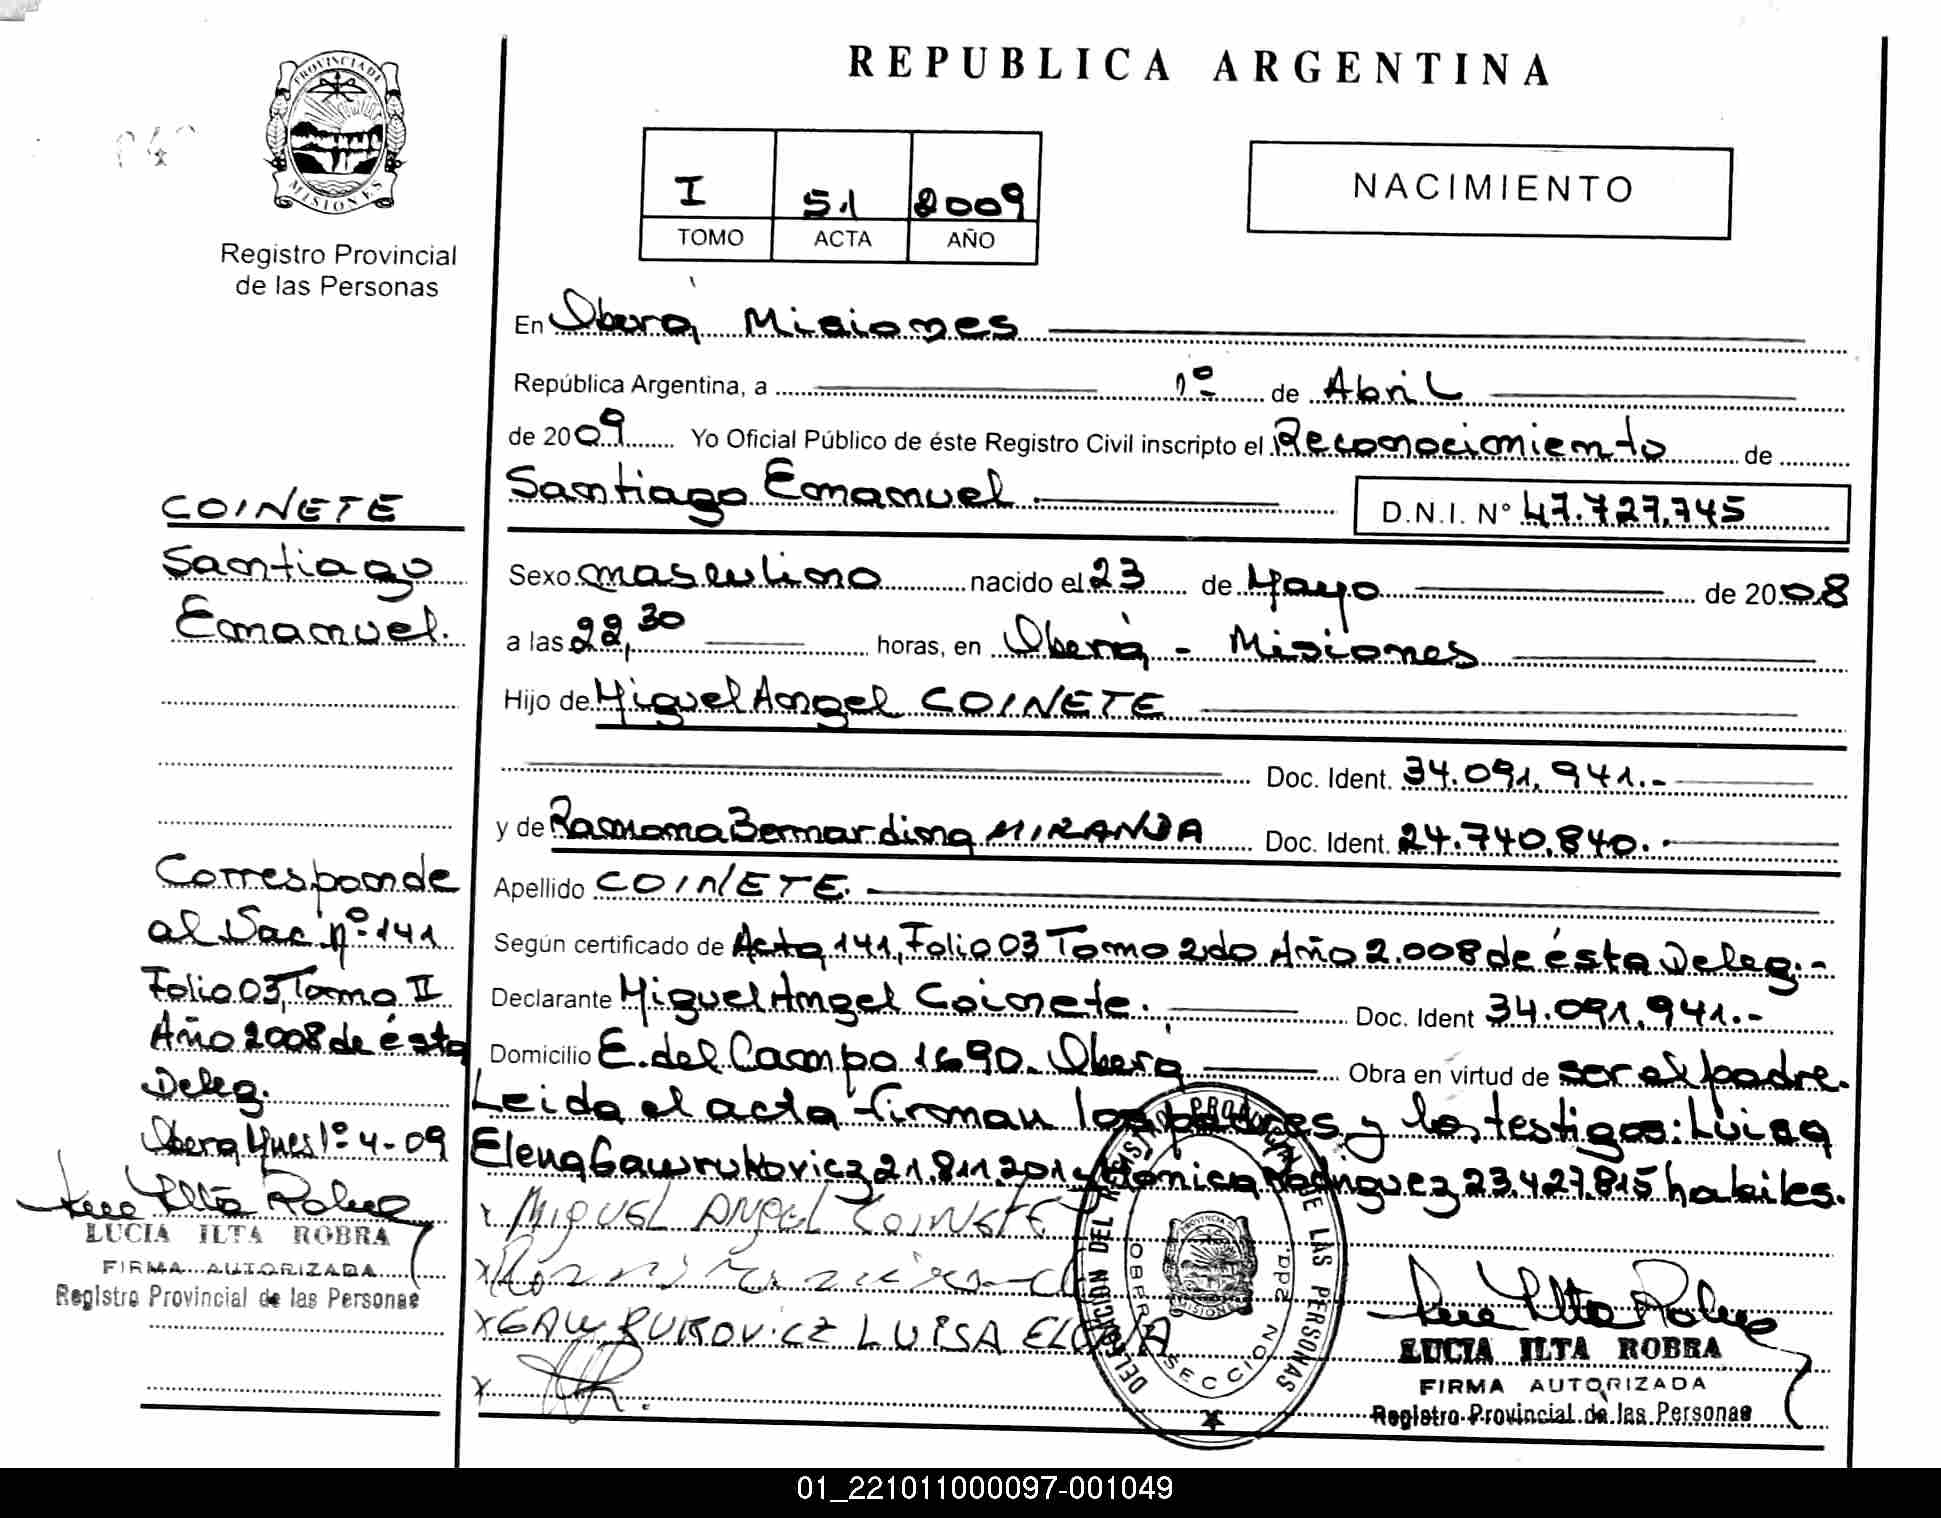 REPUBLICA ARGENTINA
PROVINCIA DE
MISIONES
Registro Provincial
de las Personas
I 51 2009
TOMO ACTA AÑO
NACIMIENTO
En Oberá Misiones
República Argentina, a 1º de Abril
de 2009 Yo Oficial Público de éste Registro Civil inscripto el Reconocimiento de
Santiago Emanuel D.N.I. Nº 47.727.745
Sexo masculino nacido el 23 de Mayo de 2008
a las 22,30 horas, en Oberá - Misiones
Hijo de Miguel Angel COINETE
Doc. Ident. 34.091.941.-
y de Ramona Bernardina MIRANDA Doc. Ident. 24.740.840.-
Apellido COINETE.
Según certificado de Acta 141, Folio 03 Tomo 2do Año 2.008 de ésta Deleg.-
Declarante Miguel Angel Coinete. Doc. Ident 34.091.941.-
Domicilio E. del Campo 1690. Oberá Obra en virtud de ser el padre.
Leida el acta firman los padres y los testigos: Luisa
Elena Gawrukovicz 21.811.201 y Monica Rodriguez 23.427.815 habiles.
x MIGUEL ANGEL COINETE
x
x GAWRUKOVICZ LUISA ELENA
x
DELEGACION DEL REGISTRO PROVINCIAL DE LAS PERSONAS
SECCION
PROVINCIA DE
MISIONES
LUCIA ILTA ROBRA
FIRMA AUTORIZADA
Registro Provincial de las Personas
COINETE
Santiago
Emanuel.
Corresponde
al Nac. nº 141
Folio 03, Tomo II
Año 2008 de ésta
Deleg.
Oberá Mnes 1º-4-09
LUCIA ILTA ROBRA
FIRMA AUTORIZADA
Registro Provincial de las Personas
01_221011000097-001049